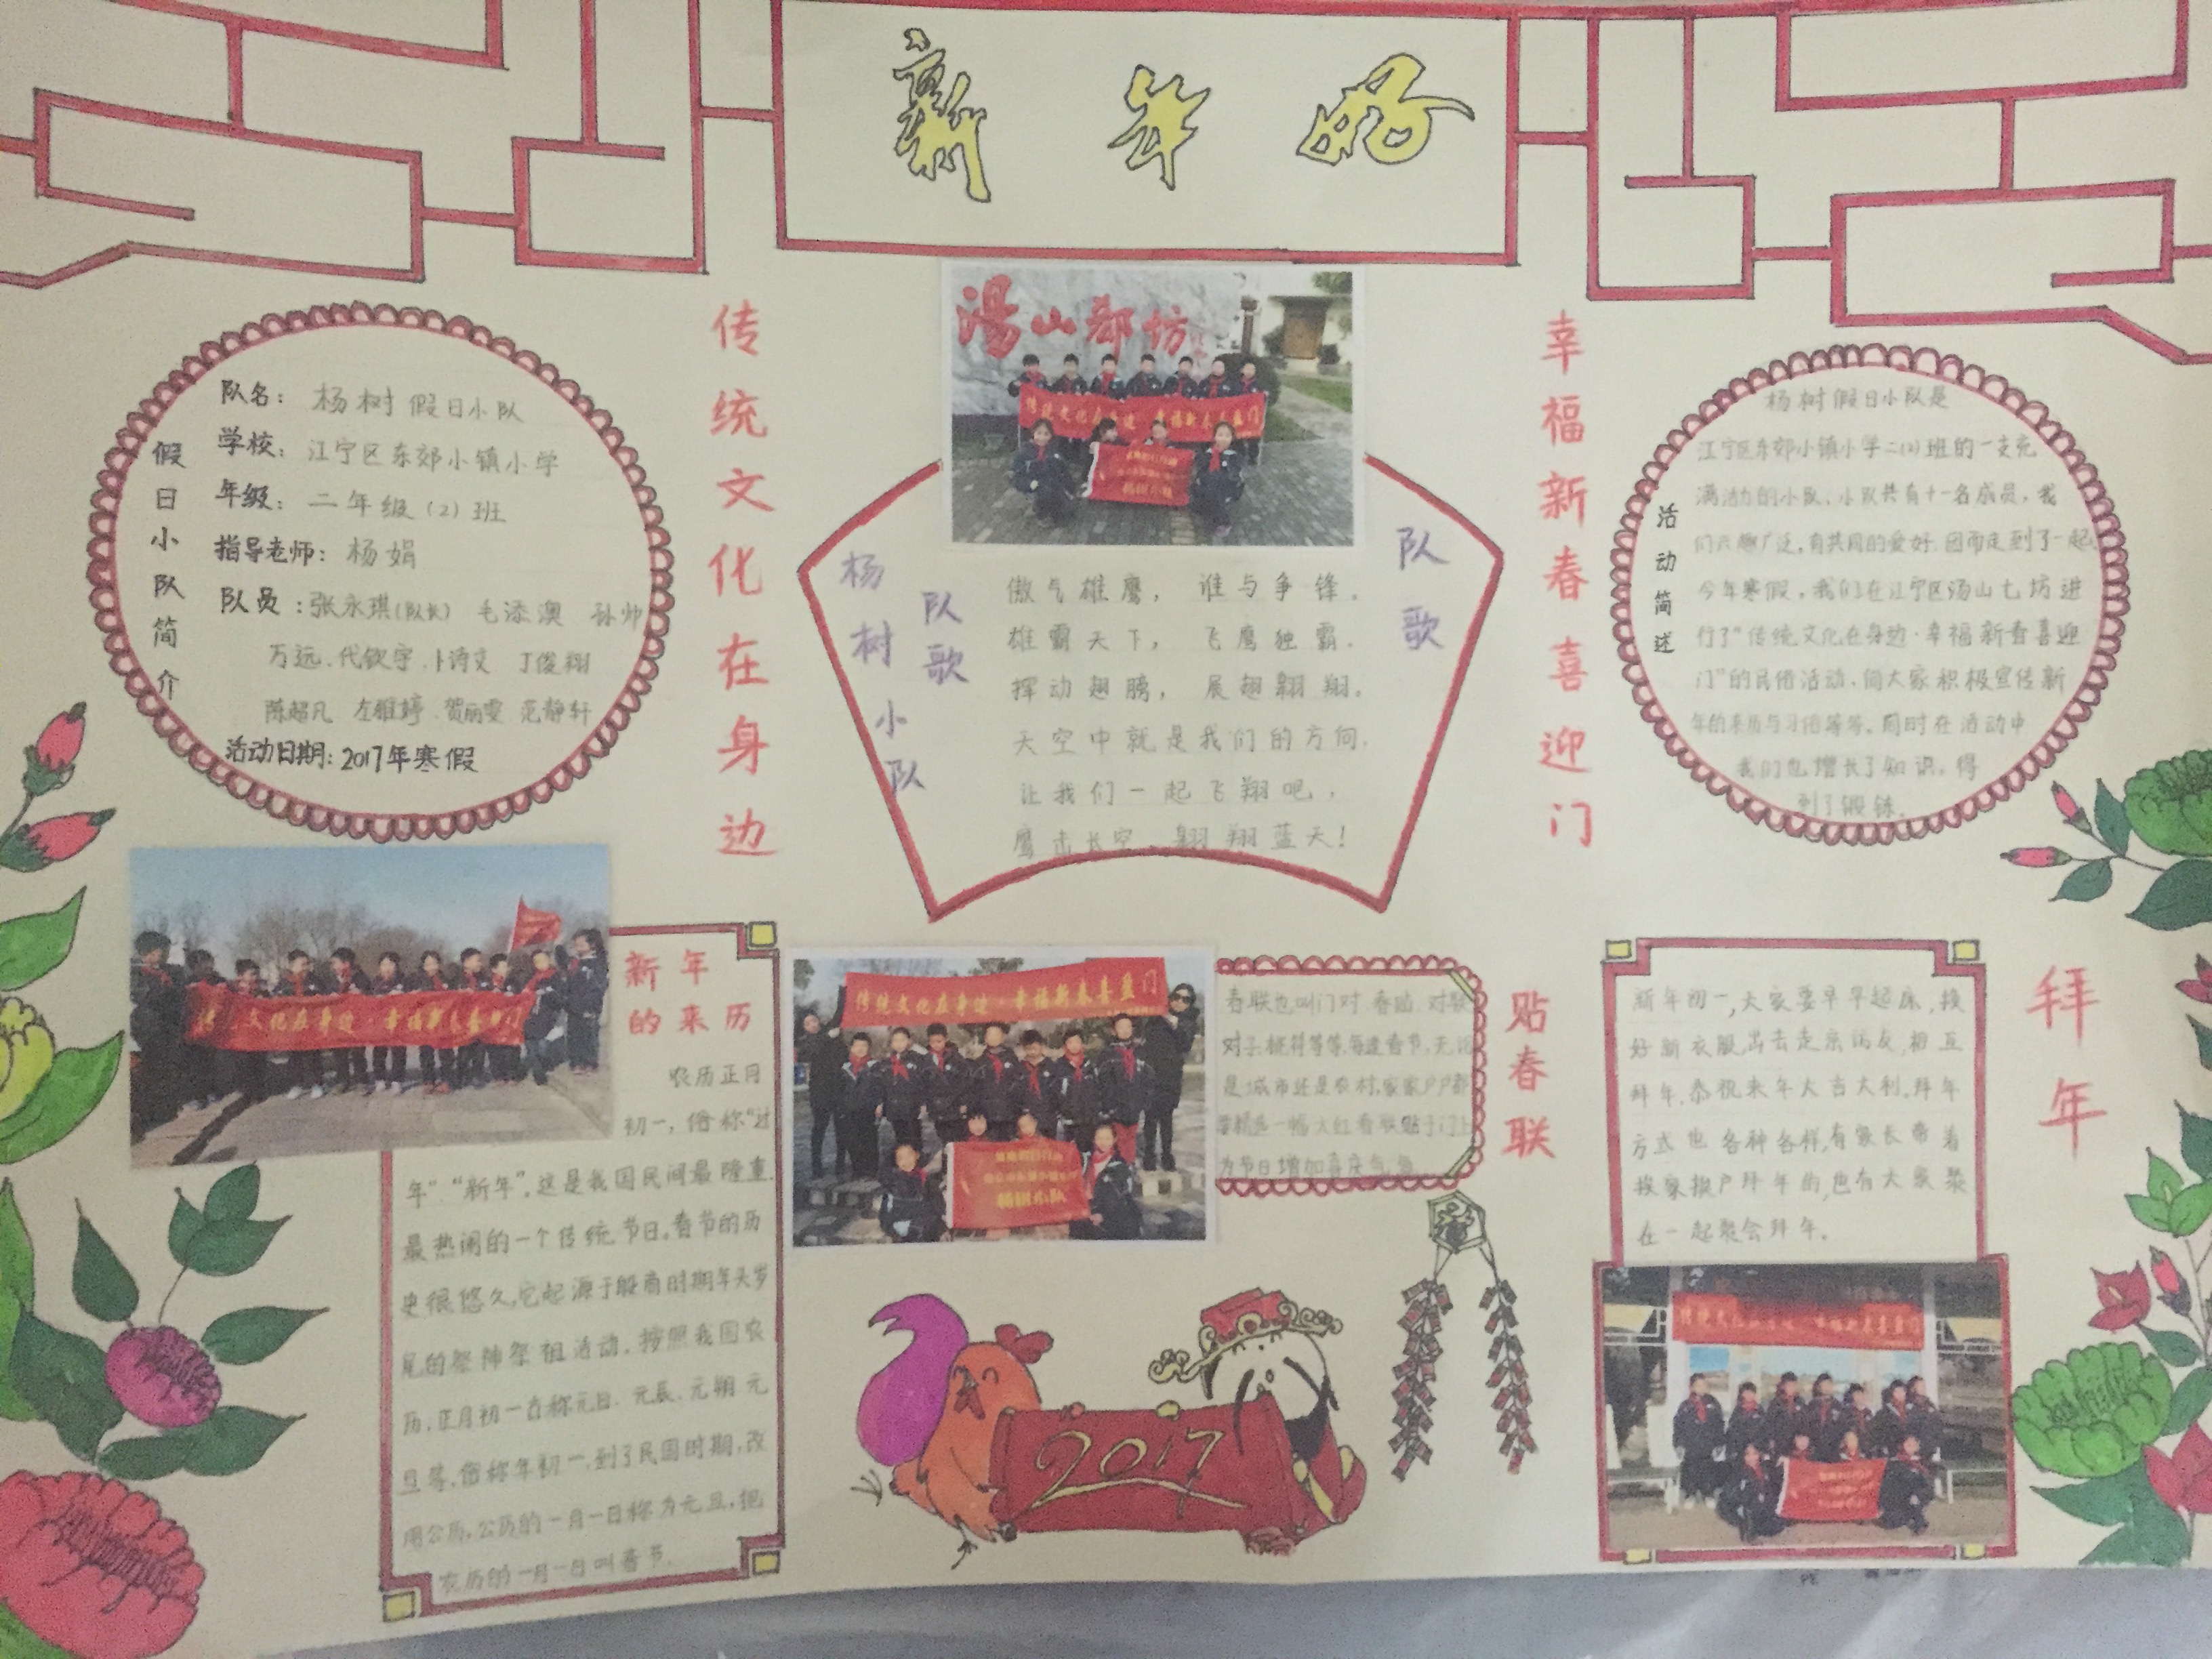 新年好
假日小队简介
队名：杨树假日小队
学校：江宁区东郊小镇小学
年级：二年级（2）班
指导老师：杨娟
队员：张永琪（队长） 毛添澳 孙帅
万远 代钦宇 卜诗文 丁俊翔
陈超凡 左雅婷 贺丽雯 范静轩
活动日期：2017年寒假
传统文化在身边
湯山都坊
传统文化在身边·幸福新春喜盈门
杨树小队
队歌
傲气雄鹰，谁与争锋。
雄霸天下，飞鹰独霸。
挥动翅膀，展翅翱翔。
天空中就是我们的方向，
让我们一起飞翔吧，
鹰击长空、翱翔蓝天！
队歌
幸福新春喜迎门
活动简述
杨树假日小队是
江宁区东郊小镇小学二（2）班的一支充
满活力的小队，小队共有十一名成员，我
们兴趣广泛，有共同的爱好，因而走到了一起，
今年寒假，我们在江宁区汤山七坊进
行了“传统文化在身边·幸福新春喜迎
门”的民俗活动，向大家积极宣传新
年的来历与习俗等等。同时在活动中
我们也增长了知识，得
到了锻炼。
新年
的来历
农历正月
初一，俗称“过
年”“新年”，这是我国民间最隆重
最热闹的一个传统节日。春节的历
史很悠久，它起源于殷商时期年头岁
尾的祭神祭祖活动．按照我国农
历，正月初一古称元日、元辰、元朔 元
旦等，俗称年初一，到了民国时期，改
用公历，公历的一月一日称为元旦，把
农历的一月一日叫春节．
传统文化在身边·幸福新春喜盈门
杨树小队
春联也叫门对 春贴 对联
对子 桃符等等，每逢春节，无论
是城市还是农村，家家户户都
要精选一幅大红春联贴于门上
为节日增加喜庆气氛
贴春联
2017
拜年
新年初一，大家要早早起床，换
好新衣服，出去走亲访友，相互
拜年，恭祝来年大吉大利，拜年
方式也 各种各样，有家长带着
挨家挨户拜年的，也有大家聚
在一起聚会拜年。
传统文化在身边·幸福新春喜盈门